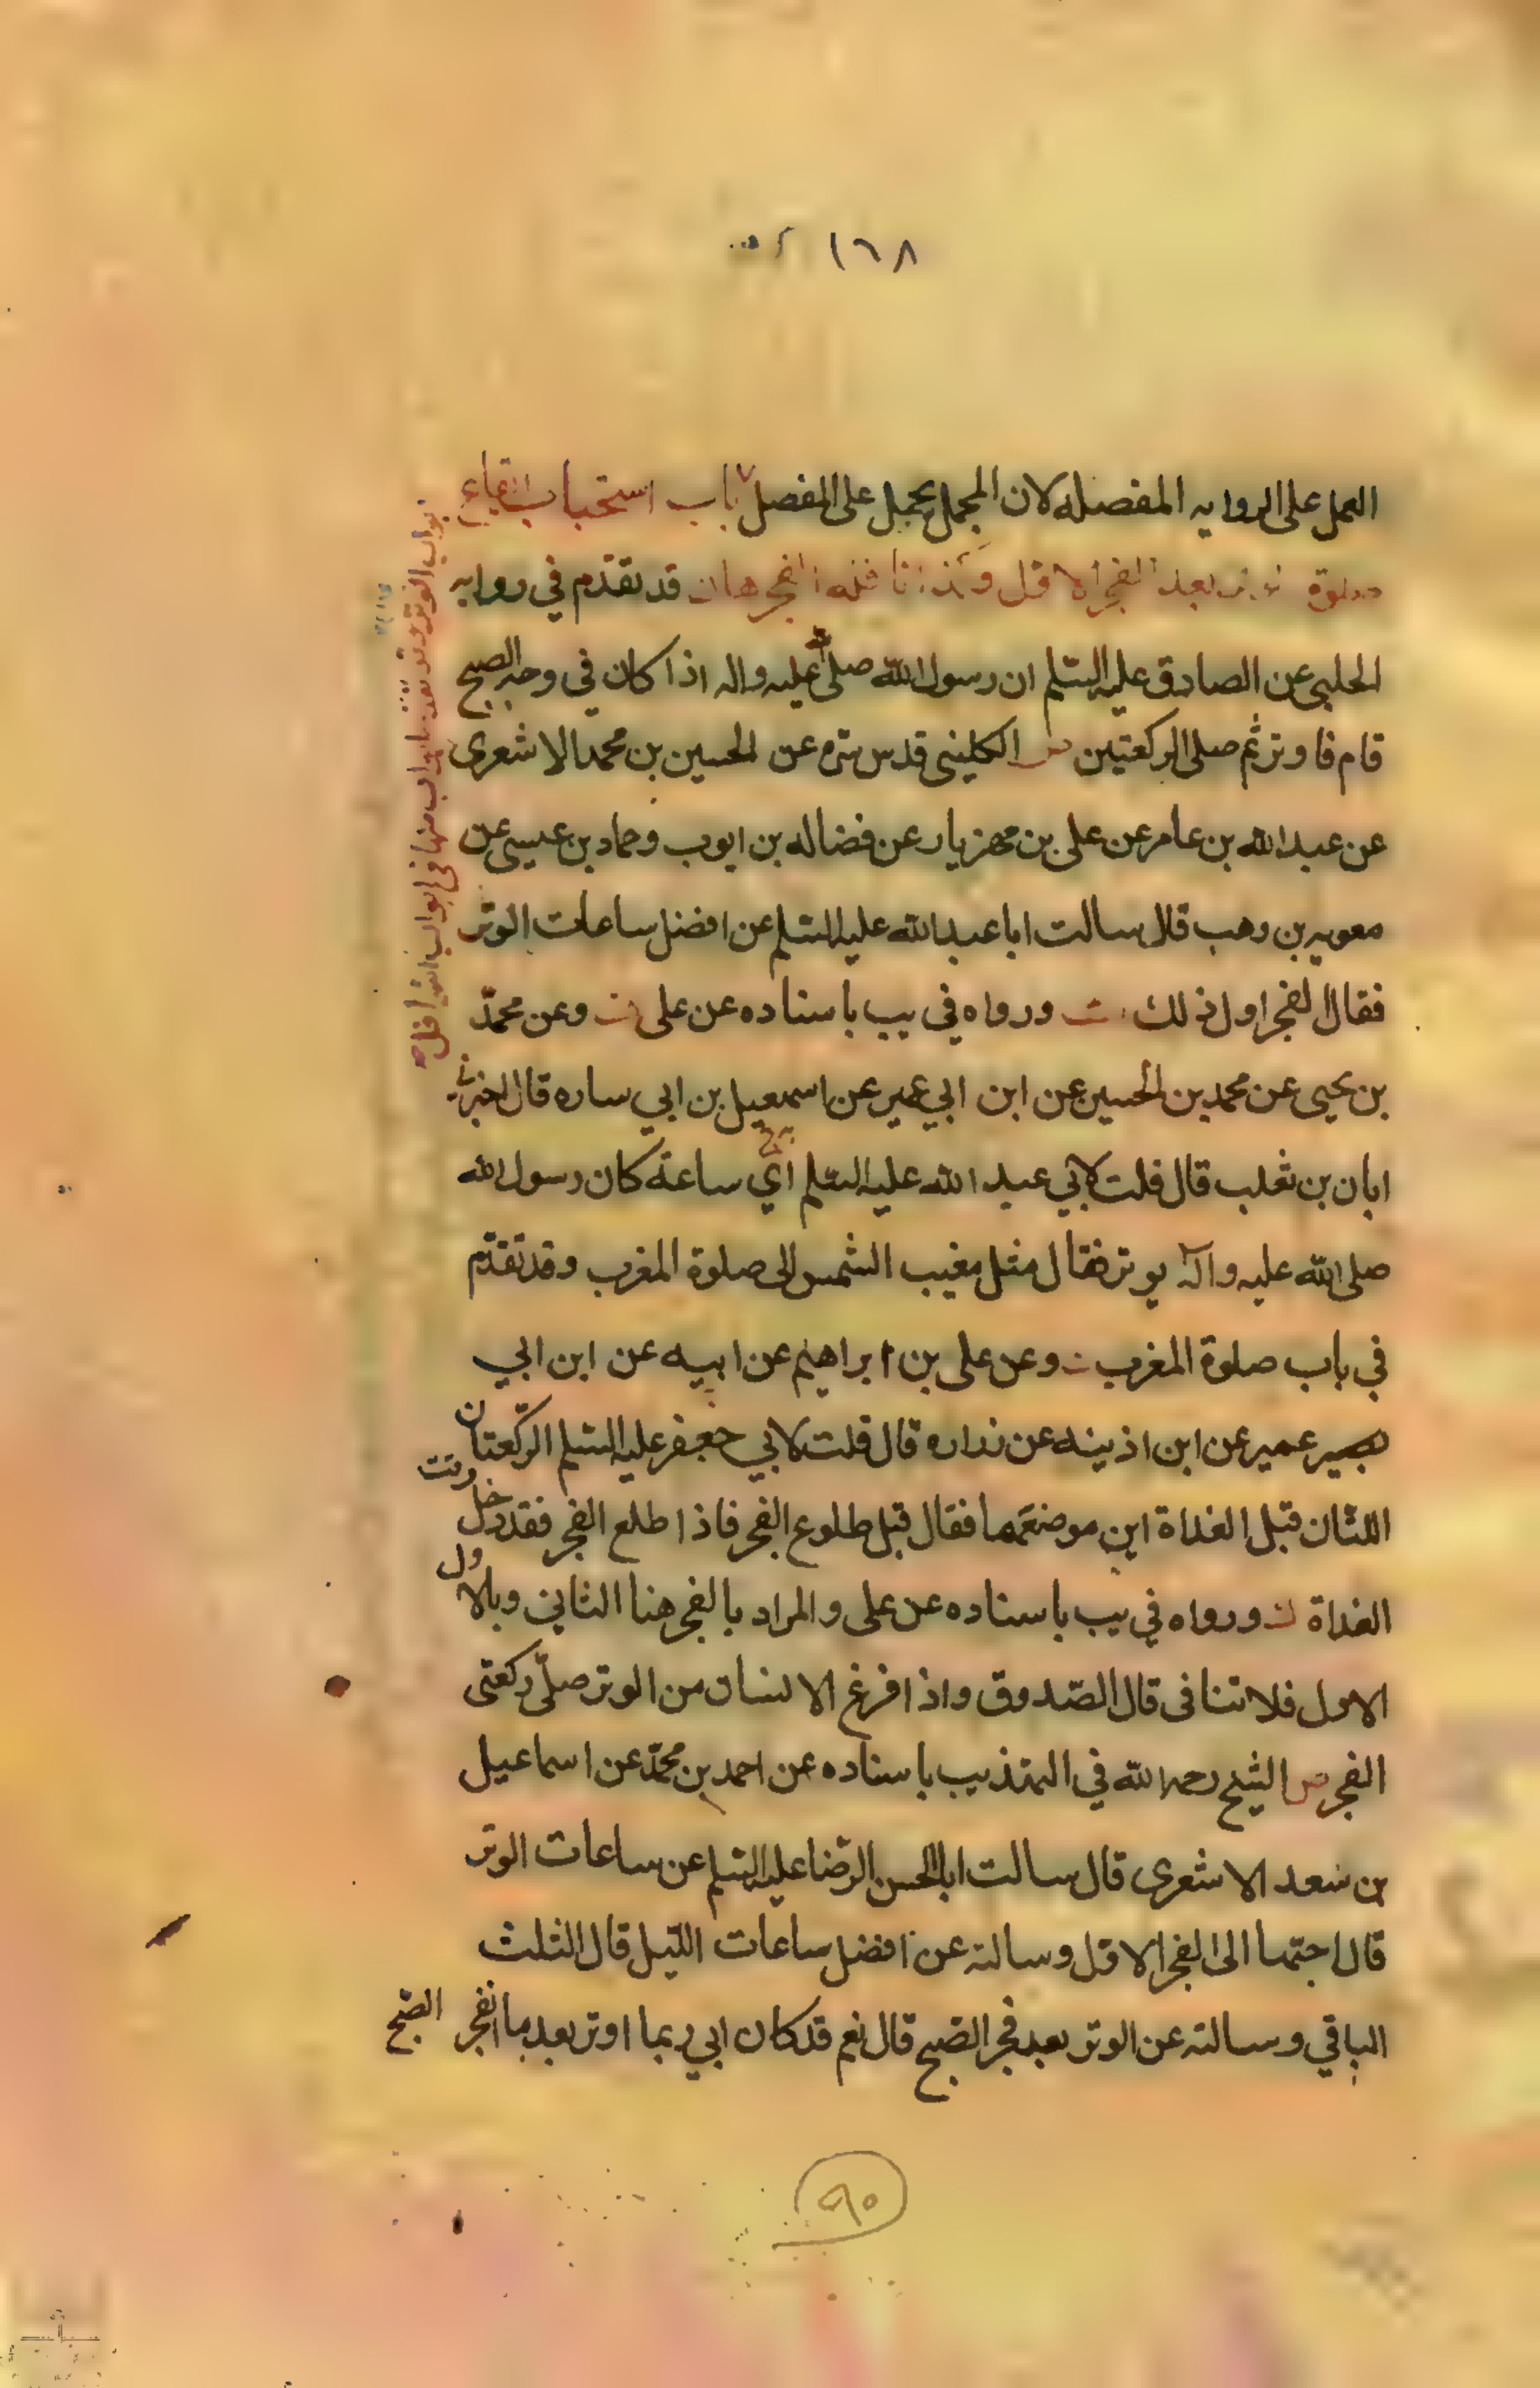 ١٦٨
العمل على الروايه المفصله لان المجمل يحمل على المفصل باب استحباب ايقاع
صلوة الوتر بعد الفجر الاول وكذا نافله الفجر هان قد تقدم في روايه
الحلبي عن الصادق عليه السلم ان رسول الله صلى الله عليه واله اذا كان في وجه الصبح
قام فاوتر ثم صلى الركعتين ص الكليني قدس سره عن الحسين بن محمد الاشعرى
عن عبد الله بن عامر عن على بن مهزيار عن فضاله بن ايوب وحماد بن عيسى عن
معويه بن وهب قال سالت ابا عبد الله عليه السلم عن افضل ساعات الوتر
فقال الفجر اول ذلك ورواه في يب باسناده عن على وعن محمّد
بن يحيى عن محمد بن الحسين عن ابن ابي عمير عن اسمعيل بن ابي ساره قال اخبرني
ابان بن تغلب قال قلت لابي عبد الله عليه السلم اي ساعة كان رسول الله
صلى الله عليه وآله يوتر فقال مثل مغيب الشمس الى صلوة المغرب وقد تقدم
في باب صلوة المغرب وعن على بن ابراهيم عن ابيه عن ابن ابي
بصير عمير عن ابن اذينه عن زراره قال قلت لابي جعفر عليه السلم الركعتان
اللتان قبل الغداة اين موضعهما فقال قبل طلوع الفجر فاذا طلع الفجر فقد دخل وقت
الغداة ورواه في يب باسناده عن على والمراد بالفجر هنا الثاني وبالاول
الاول فلا تنافى قال الصّدوق واذا فرغ الانسان من الوتر صلّى ركعتى
الفجر ص الشيخ رحمه الله في التهذيب باسناده عن احمد بن محمّد عن اسماعيل
بن سعد الاشعرى قال سالت ابا الحسن الرضا عليه السلم عن ساعات الوتر
قال احبّها الى الفجر الاول وسالته عن افضل ساعات اللّيل قال الثلث
الباقي وسالته عن الوتر بعد فجر الصّبح قال نعم قد كان ابي ربما اوتر بعد ما انفجر الصّبح
٩٠